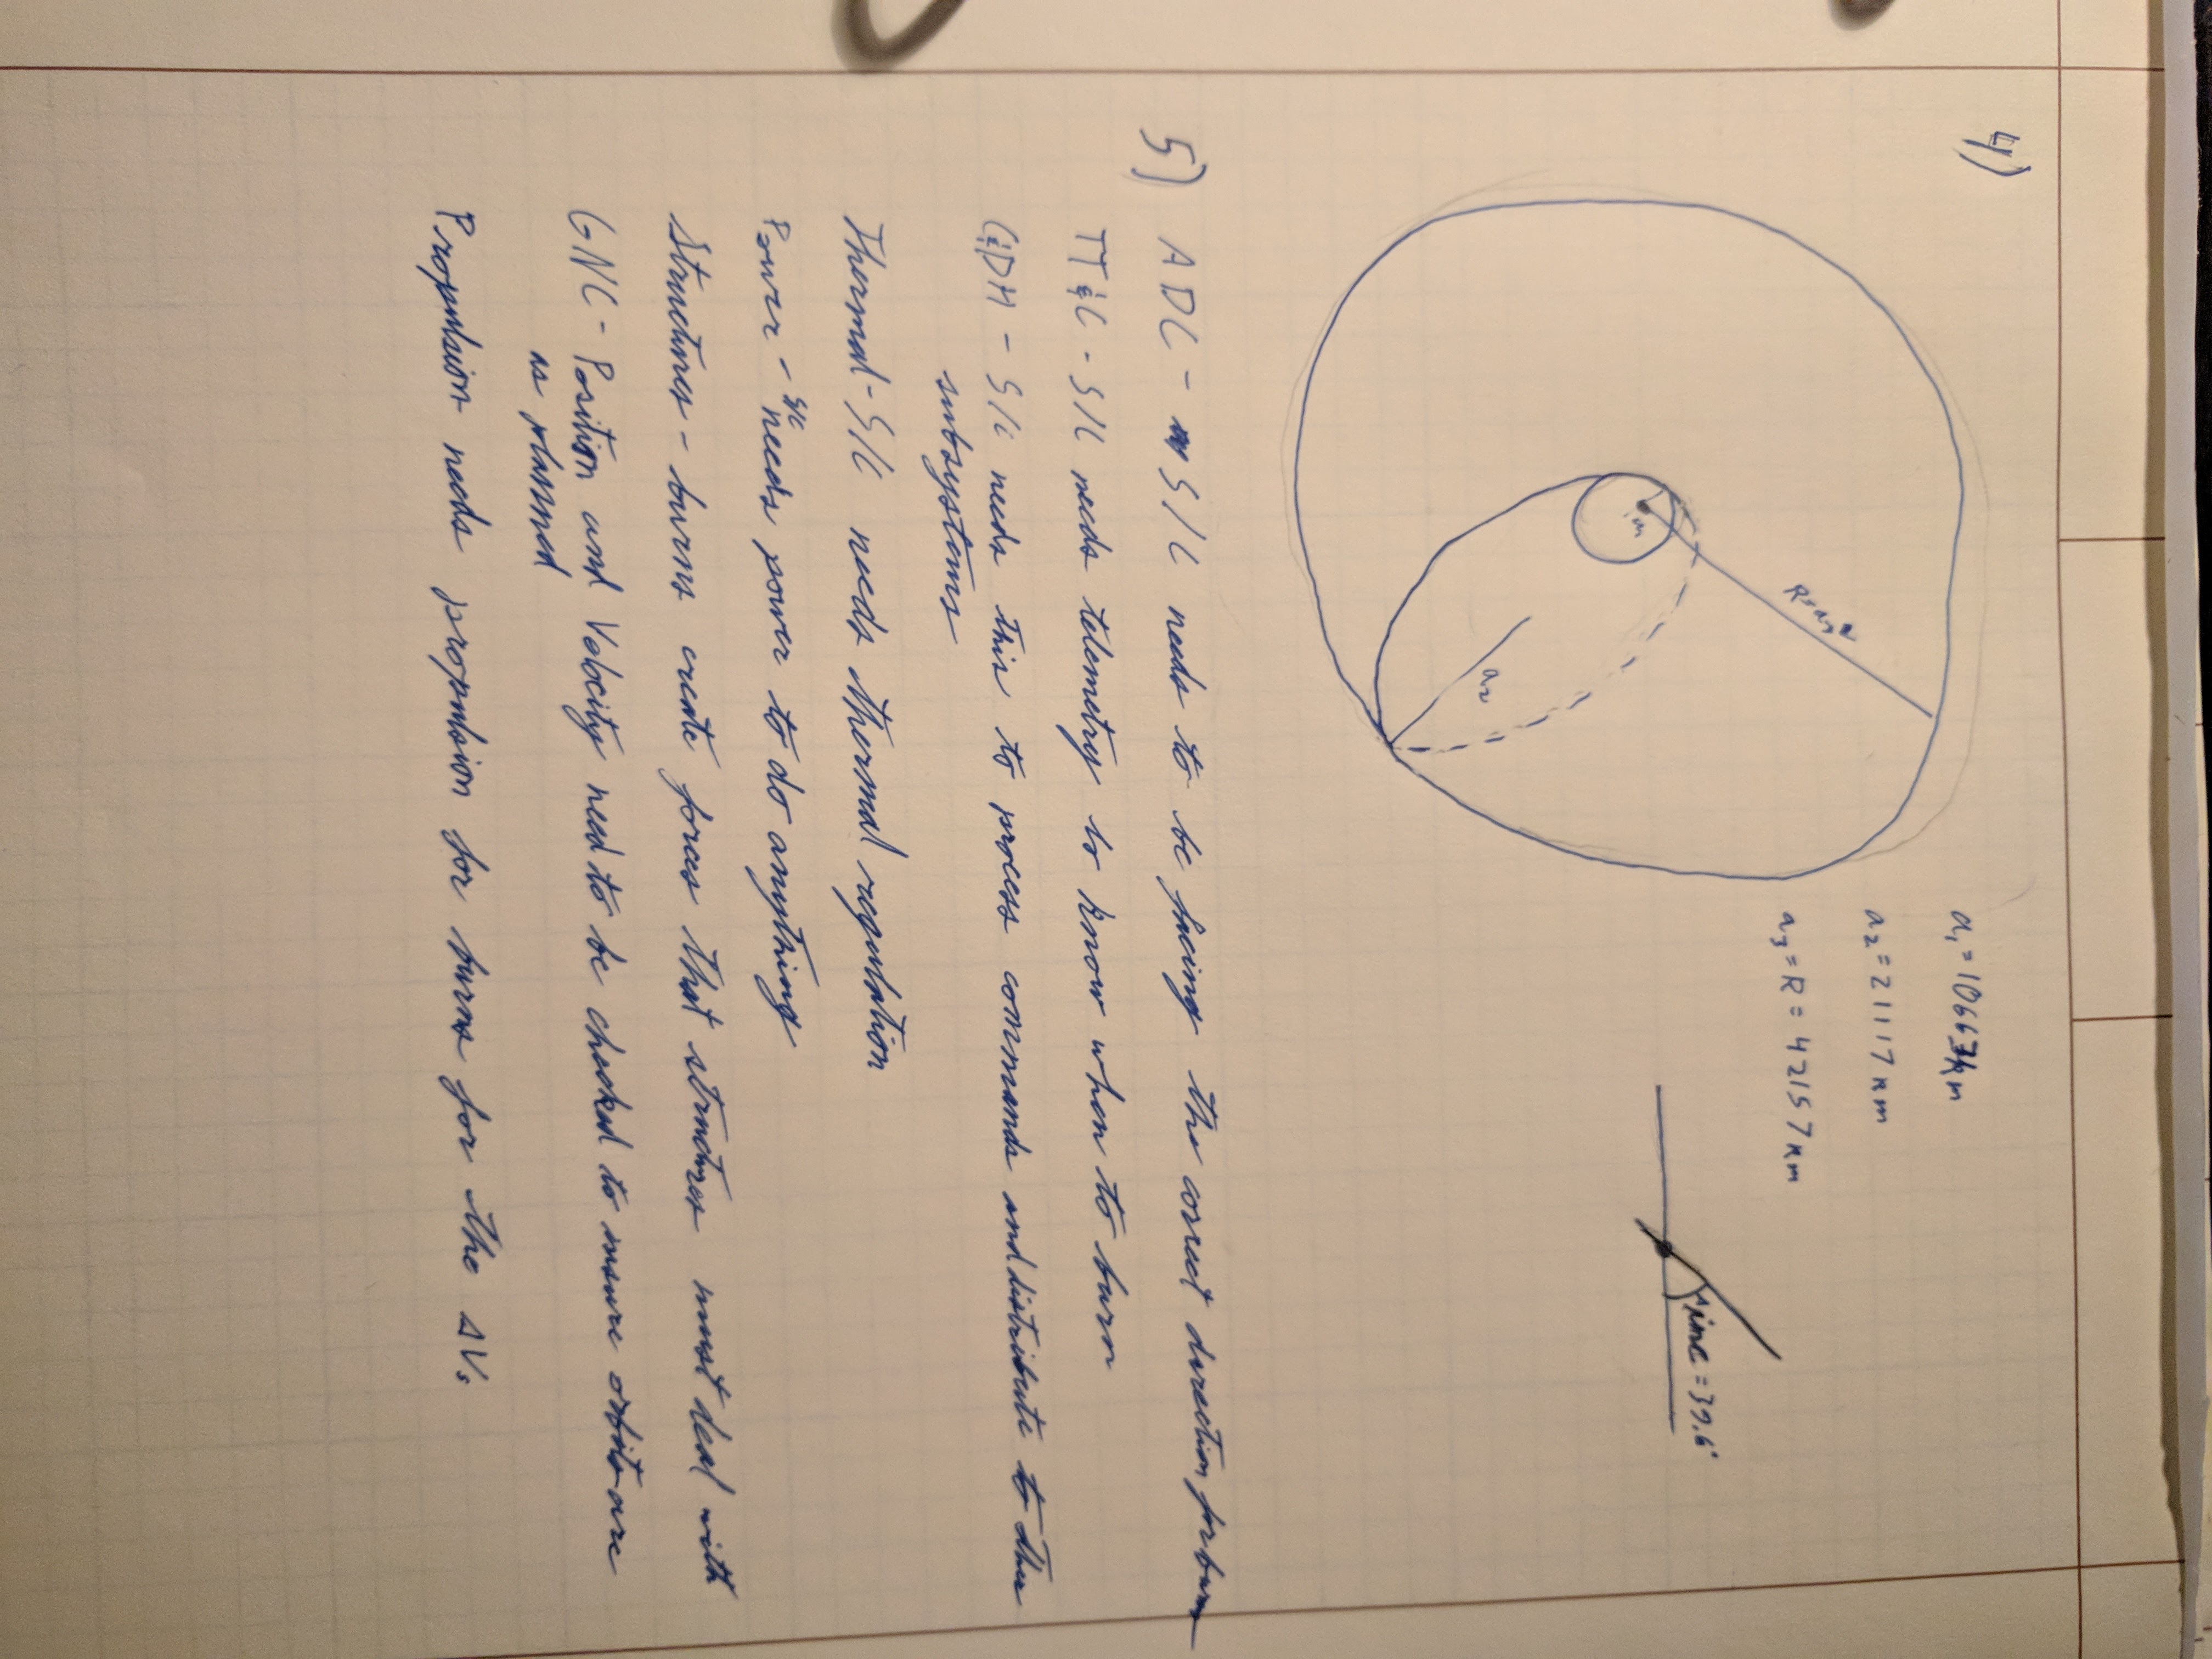 4)
a₁ = 10663km
a₂ = 21117 km
a₃ = R = 42157 km
R=a₃
a₁
a₂
inc = 39.6°
5) ADC - S/C needs to be facing the correct direction for burns
TT&C - S/C needs telemetry to know when to burn
C&DH - S/C needs this to process commands and distribute to other
subsystems
Thermal - S/C needs thermal regulation
Power - S/C needs power to do anything
Structures - burns create forces that structures must deal with
GNC - Position and Velocity need to be checked to insure orbits are
as planned
Propulsion needs propulsion for burns for the ΔVs